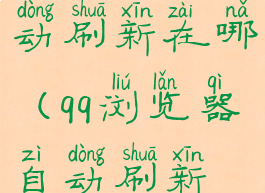 dòng shuā xīn zài nǎ
动刷新在哪
liú lǎn qì
(qq浏览器
zì dòng shuā xīn
自动刷新